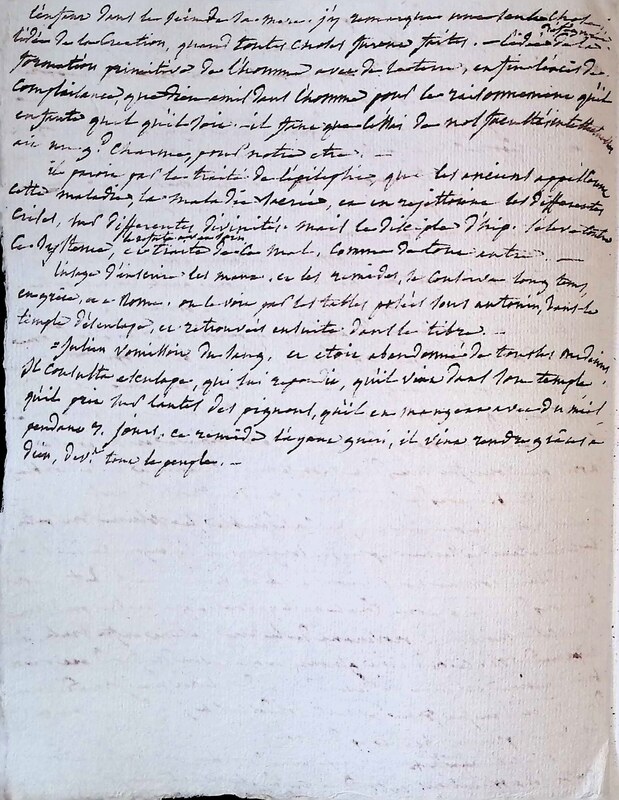 l'enfant dans le sein de la mere. j'y remarque une seule chose.
l'idée de la Creation, quand toutes choses furent faites. — l'idée de la
formation primitive de l'homme avec de la terre, enfin l'excès de
Complaisance, que dieu a mis dans l'homme pour le raisonnement qu'il
enfante quel qu'il soit. il faut que l'essai de nos facultés intellectuelles
ait un gd. Charme, pour notre etre. —
il paroit par le traité de l'épilepsie, que les anciens appelloient
cette maladie, la maladie sacrée, et en rejettoient les differentes
Crises, sur differentes divinités. mais le disciple d'hip. s'eleve contre
Ce systeme, et traite de ce mal, comme de tout autre. —
l'usage d'ecrire les maux, et les remedes, se Conserva long tems,
en grèce, et a Rome. on le voit par les tables posées sous antonin, dans le
temple d'esculape, et retrouvées ensuite dans le tibre. —
Julien vomissoit du sang, et etoit abandonné de tous les medecins.
Il Consulta esculape, qui lui repondit, qu'il vint dans son temple
qu'il prit sur l'autel des pignons, qu'il en mangeat avec du miel
pendant 3. jours. ce remede l'ayant gueri, il vint rendre grâces a
dieu, devt. tout le peuple. —